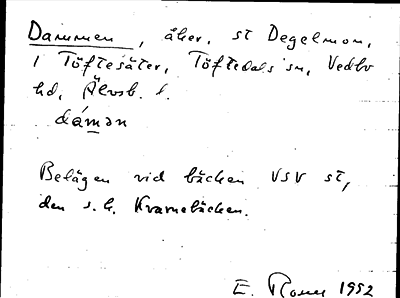 Dammen, åker, st Degelmon,
1 Töftesäter, Töftedals sn, Vedbo
hd, Älvsb. l.
dámən
Belägen vid bäcken VSV st,
den s.k. Kvarnebäcken.
E. 1952